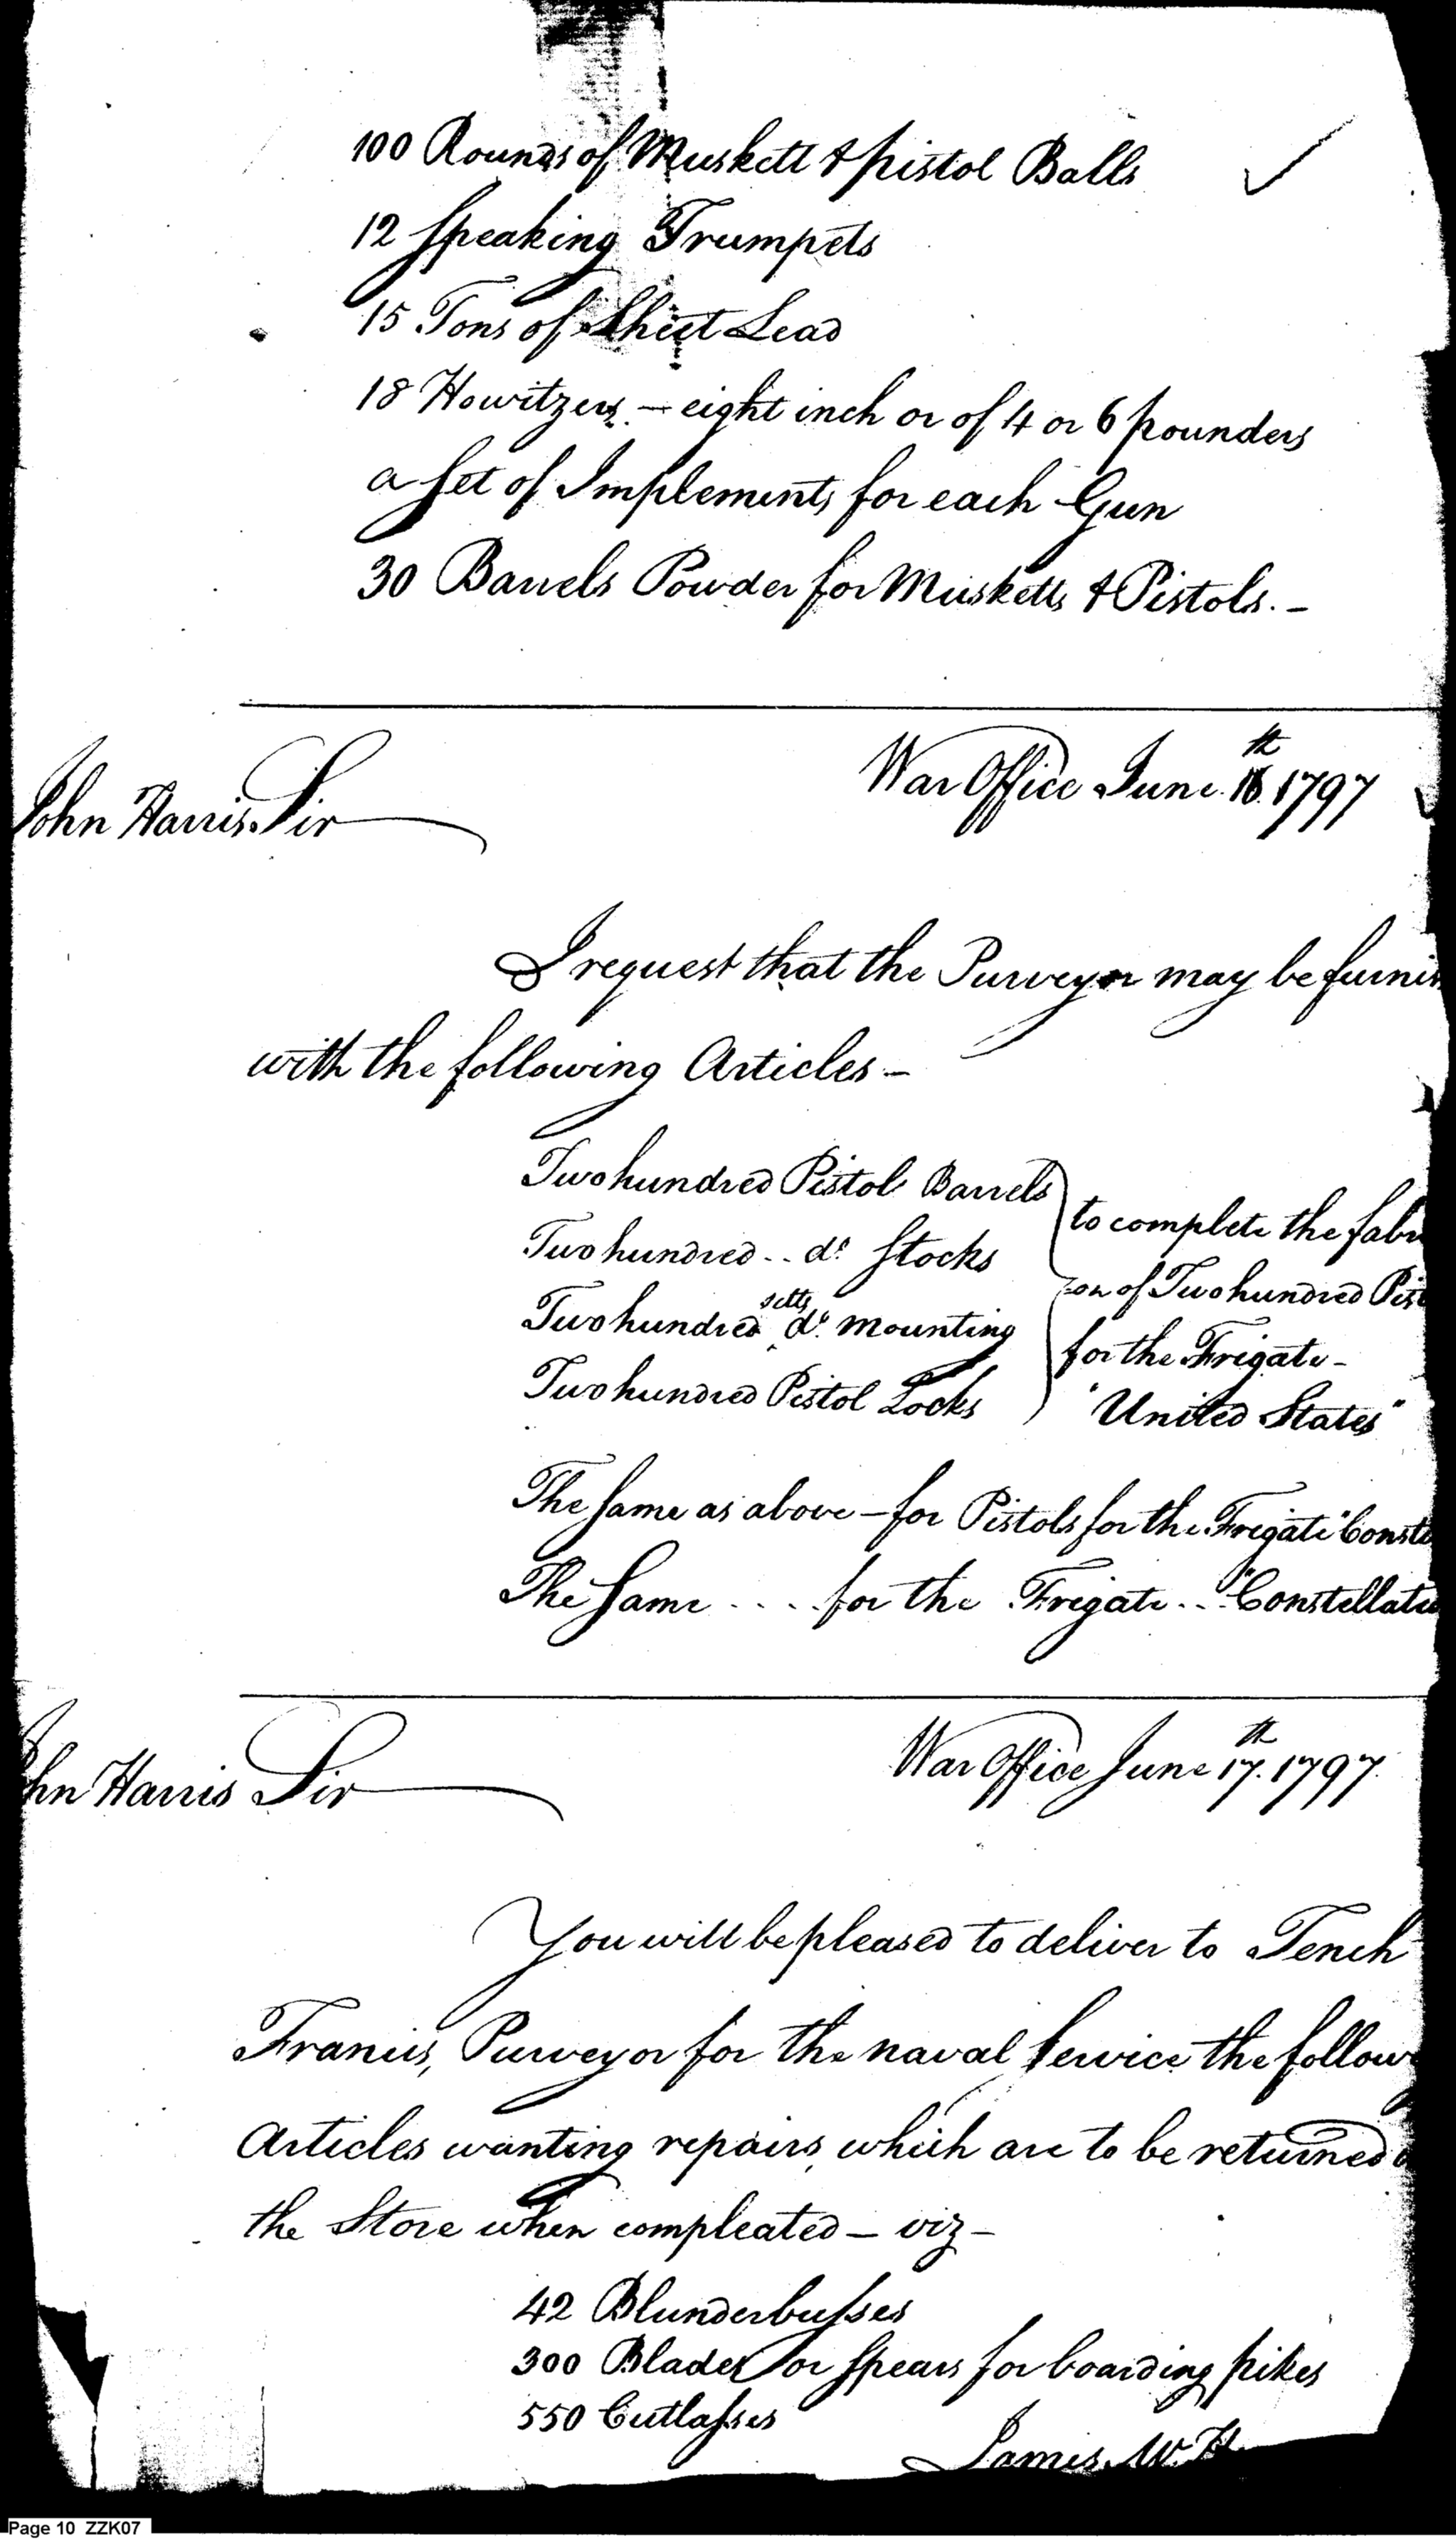 100 Rounds of Muskett & pistol Balls
12 Speaking Trumpets
15 Tons of Sheet Lead
18 Howitzers - eight inch or of 4 or 6 pounders
a Set of Implements for each Gun
30 Barrels Powder for Musketts & Pistols. -
War Office June 16th 1797
John Harris. Sir
I request that the Purveyor may be furnis
with the following Articles -
Two hundred Pistol Barrels
Two hundred .. do. Stocks
Two hundred setts do. mounting
Two hundred Pistol Locks
to complete the fabri
-on of Two hundred Pist
for the Frigate -
"United States"
The Same as above - for Pistols for the Frigate "Consti
The Same .... for the Frigate .. "Constellatio
War Office June 17th. 1797.
ohn Harris Sir
You will be pleased to deliver to Tench
Francis, Purveyor for the naval Service the follow
Articles wanting repairs, which are to be returned
the Store when compleated - viz -
42 Blunderbusses
300 Blades or Spears for boarding pikes
550 Cutlasses
James. W.
Page 10 ZZK07